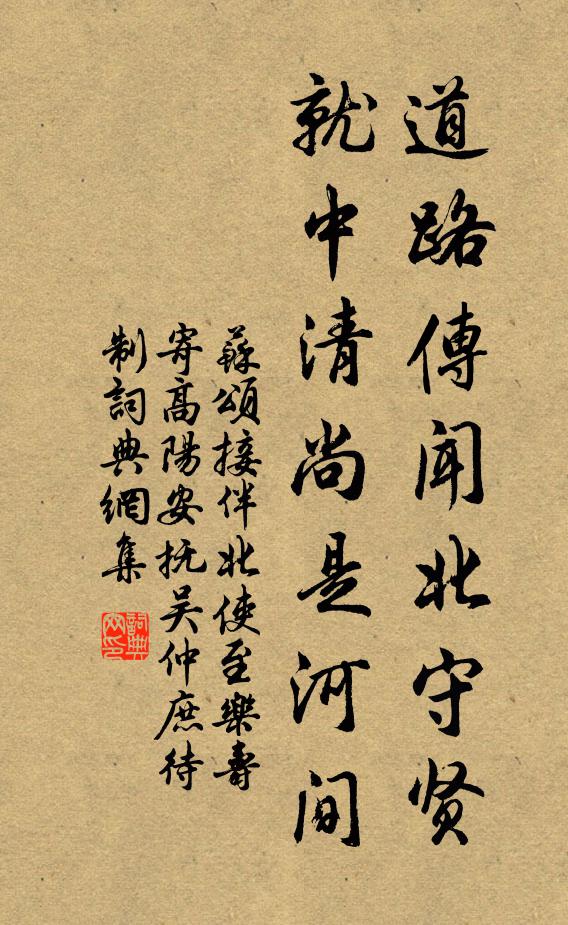 道路傳聞北守贤
就中清尚是河间
蘇頌接伴北使至樂壽
寄高陽安抚吴仲庶待
制詞典網集
詞典網印